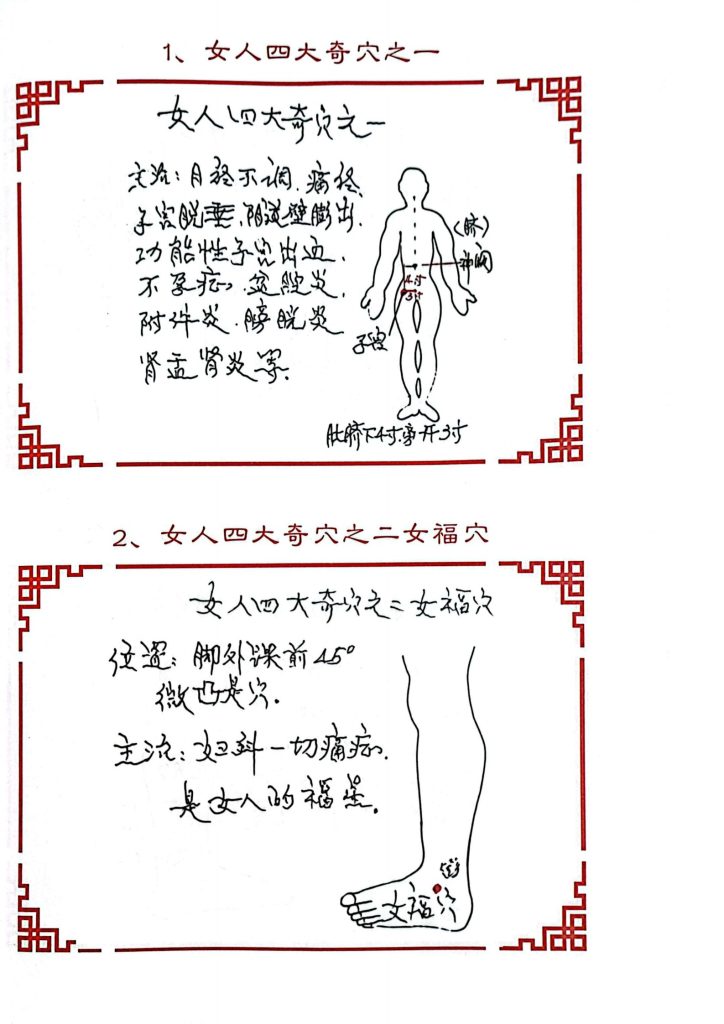 1、女人四大奇穴之一
女人四大奇穴之一
主治：月经不调、痛经、
子宫脱垂、阴道壁膨出、
功能性子宫出血、
不孕症、盆腔炎、
附件炎、膀胱炎
肾盂肾炎等.
(脐)
神阙
4寸
3寸
子宫
肚脐下4寸.旁开3寸
2、女人四大奇穴之二女福穴
女人四大奇穴之二女福穴
位置：脚外踝前45°
微凹是穴.
主治：妇科一切痛症.
是女人的福星.
女福穴